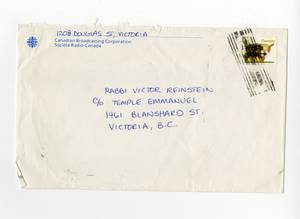 1208 DOUGLAS ST, VICTORIA
Canadian Broadcasting Corporation
Société Radio-Canada
RABBI VICTOR REINSTEIN
C/O TEMPLE EMMANUEL
1461 BLANSHARD ST.
VICTORIA, B.C